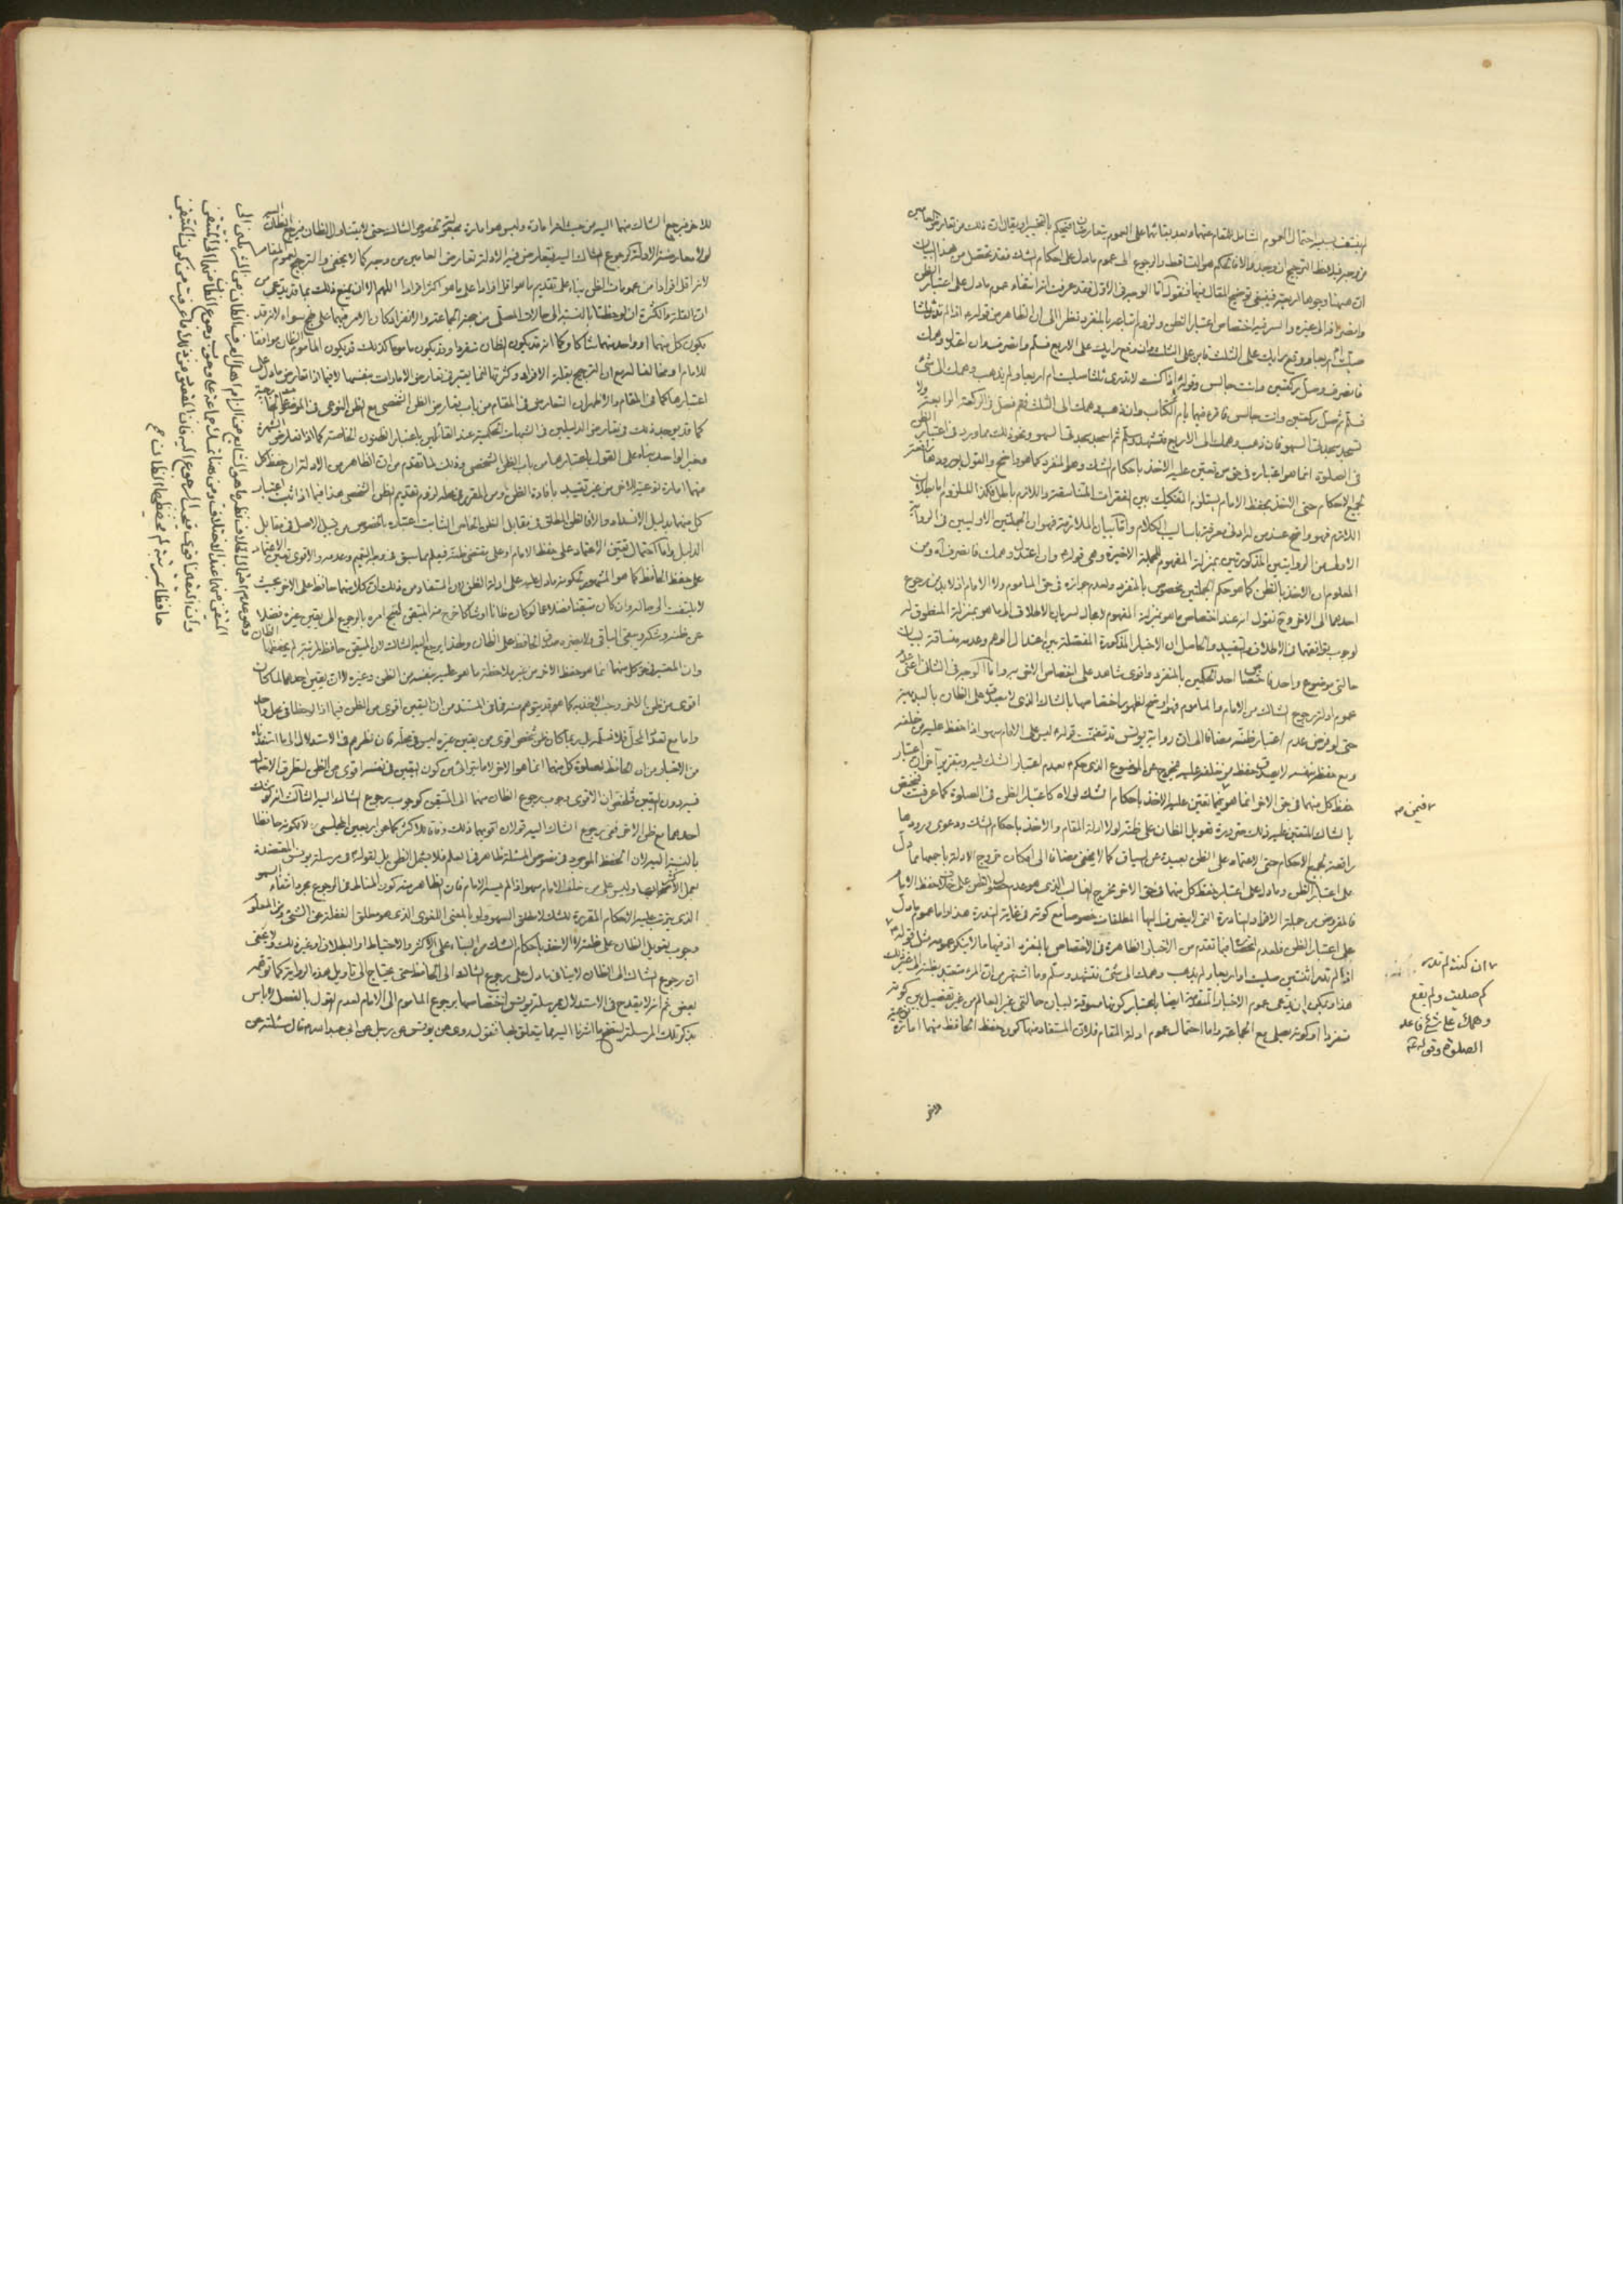 من وجه فيلاحظ الترجيح ان وجد والا فالحكم هو التساقط والرجوع الى عموم مادل على احكام الشك فقد تحصل من هذا البيان
ان هيهنا وجوها اربعة فينبغي توضيح المقال فيها فنقول اما الوجه في الاول فقد عرفت انه انتفاء عموم مادل على اعتبار الظن
صليت ام اربعا ووقع رايك على الثلث فابن على الثلث وان وقع رايك على الاربع فسلم وانصرف وان اعتدل وهمك
فانصرف وصل ركعتين وانت جالس وقوله اذا كنت لا تدري ثلثا صليت ام اربعا ولم يذهب وهمك الى شئ
فسلم ثم صل ركعتين وانت جالس تقرء فيهما بام الكتاب وان ذهب وهمك الى الثلث فقم فصل الركعة الرابعة ولا
تسجد سجدتي السهو فان ذهب وهمك الى الاربع فتشهد وسلم ثم اسجد سجدتي السهو ونحو ذلك مما ورد في اعتبار الظن
في الصلوة انما هو اعتباره في حق من تعين عليه الاخذ باحكام الشك وهو المنفرد كما هو واضح والقول بورودها
لجميع الاحكام حتى الاخذ بحفظ الامام يستلزم التفكيك بين الفقرات المتناسقة واللازم باطل فكذا الملزوم اما بطلان
اللازم فهو واضح عند من له ادنى معرفة باساليب الكلام واما بيان الملازمة فهو ان الجملتين الاوليين في الرواية
الاولى من الروايتين المذكورتين بمنزلة المفهوم للجملة الاخيرة وهي قوله وان اعتدل وهمك فانصرف اه ومن
المعلوم ان الاخذ بالظن كما هو حكم الجملتين مخصوص بالمنفرد ولعدم جوازه في حق الماموم ولا الامام اذ لابد من رجوع
احدهما الى الاخر وح نقول انه عند اختصاص ما هو بمنزلة المفهوم لا مجال لسريان الاطلاق الى ما هو بمنزلة المنطوق له
لوجوب توافقهما في الاطلاق والتقييد والحاصل ان الاخبار المذكورة المفصلة بين اعتدال الوهم وعدمه مساقة لبيان
حالتي موضوع واحد فاختصاص احد الحكمين بالمنفرد واقوى شاهد على اختصاص الاخر به واما الوجه في الثاني اعني عدم
عموم ادلة رجوع الشاك من الامام والماموم فهو اوضح لظهور اختصاصها بالشاك الذي لا يصدق على الظان بالبديهة
حتى لو فرض عدم اعتبار ظنه مضافا الى ان رواية يونس قد تضمنت قوله ليس على الامام سهو اذا حفظ عليه من خلفه
ومع حفظ نفسه لا يصدق حفظ من خلفه عليه فيخرج عن الموضوع الذي حكم بعدم اعتبار الشك فيه وبتقرير اخر ان اعتبار
حفظ كل منهما في حق الاخر انما هو فيما تعين عليه الاخذ باحكام الشك لولاه كاعتبار الظن في الصلوة كما عرفت فيختص
بالشاك المتعين عليه ذلك ضرورة تعويل الظان على ظنه لولا ادلة المقام والاخذ باحكام الشك ودعوى ورودها
رافعة لجميع الاحكام حتى الاعتماد على الظن بعيدة عن السياق كما لا يخفى مضافا الى امكان خروج الادلة باجمعها مما دل
على اعتبار الظن ومادل على اعتبار حفظ كل منهما في حق الاخر مخرج الغالب الذي هو عدم حصول الظن على خلاف حفظ الامام
فالمفروض من جملة الافراد النادرة التي لا ينصرف اليها المطلقات خصوصا مع كونه في غاية الندرة هذا واما عموم مادل
على اعتبار الظن فلعدم اختصاصه فيما تقدم من الاخبار الظاهرة في الاختصاص بالمنفرد اذ فيها ما لا ينكر عمومه مثل قوله
اذا لم تدر اثنتين صليت او اربعا ولم يذهب وهمك الى شئ فتشهد وسلم وما اشتهر من ان المرء متعبد بظنه الى غير ذلك
هذا ويمكن ان يدعى عموم الاخبار المتقدمة ايضا باعتبار كونها مسوقة لبيان حالتي غير العالم من غير تفصيل بين كونه
منفردا او كونه يصلي مع الجماعة واما احتمال عموم ادلة المقام فلان المستفاد منها كون حفظ الحافظ منهما امارة
فيمن صح
ان كنت لم تدر
كم صليت ولم يقع
وهمك على شئ فاعد
الصلوة وقوله
للاخر
للاخر فيرجع الشاك منهما اليه من حيث انه امارة وليس هو امارة معتبرة بخصوص الشاك حتى لا يتناول الظان فيرجع الظان اليه
لولا معارضة الادلة كرجوع الشاك اليه فيتعارض فيه الادلة تعارض العامين من وجه كما لا يخفى والترجيح لعموم المقام
لانه اقل افرادا من عمومات الظن بناء على تقديم ما هو اقل افرادا على ما هو اكثر افرادا اللهم الا ان يمنع ذلك بما قد يدعى من
ان القلة والكثرة ان لوحظتا بالنسبة الى حالات المصلي من جهة الجماعة والانفراد كان الامر فيهما على نهج سواء لانه قد
يكون كل منهما او واحد منهما شاكا وكما انه قد يكون الظان منفردا وقد يكون ماموما كذلك قد يكون الماموم الظان موافقا
للامام او مخالفا له مع ان الترجيح بقلة الافراد وكثرتها انما يعتبر في تعارض الامارات بنفسها لا فيما اذا تعارض مادل على
اعتبارها كما في المقام والاظهر ان التعارض في المقام من باب تعارض الظن الشخصي مع الظن النوعي في الموضوعات الخارجية
كما قد يوجد ذلك في تعارض الدليلين في الشبهات الحكمية عند القائلين باعتبار الظنون الخاصة كما اذا تعارض الشهرة
وخبر الواحد بناء على القول باعتبارها من باب الظن الشخصي وذلك لما تقدم من ان الظاهر من الادلة ان حفظ كل
منهما امارة نوعية للاخر من غير تقييد بافادة الظن ومن المقرر في محله لزوم تقديم الظن الشخصي هذا فيما اذا ثبت اعتبار
كل منهما بدليل الانسداد والا فالظن المطلق في مقابل الظن الخاص الثابت اعتباره بالخصوص من قبيل الاصل في مقابل
الدليل واما احتمال تعين الاعتماد على حفظ الامام او على مقتضى ظنه فيعلم مما سبق في وجه التعميم وعدمه والاقوى تعين الاعتماد
على حفظ الحافظ كما هو المشهور لحكومة مادل عليه على ادلة الظن لان المستفاد من ذلك ان كلا منهما حافظ على الاخر بحيث
لا يلتفت الى حاله وان كان متيقنا فضلا عما لو كان ظانا او شاكا خرج منه المتيقن لقبح امره بالرجوع الى يقين غيره فضلا
عن ظنه وشكه وبقي الباقي ولا يعتبر صدق الحافظ على الظان ولهذا يرجع اليه الشاك لان المتيقن حافظ لمرتبة لم يحفظها الظان
وان المعتبر في حق كل منهما انما هو حفظ الاخر من غير ملاحظة ما هو عليه بنفسه من الظن وغيره لا ان يقين احدهما لما كان
اقوى من ظن الاخر وجب الاخذ به كما هو قد يتوهم منه فما في المستند من ان اليقين اقوى من الظن فيما اذا لوحظا في محل واحد
واما مع تعدد المحل فلا نسلمه بل ربما كان ظن شخص اقوى من يقين غيره ليس في محله فان نظرهم في الاستدلال الى ما استفاد
من الاخبار من ان الحافظ لصلوة كل منهما انما هو الاخر لا ما يترائى من كون اليقين في نفسه اقوى من الظن لتطرق الاحتمال
فيه دون اليقين فظهر ان الاقوى وجوب رجوع الظان منهما الى المتيقن كوجوب رجوع الشاك اليه الثالث انه لو شك
احدهما مع ظن الاخر ففي رجوع الشاك اليه قولان اقويهما ذلك وفاقا للاكثر كما عن اربعين المجلسي لكونه حافظا
بالنسبة اليه لان الحفظ الموجود في نصوص المسئلة ظاهر في العلم فلا يشمل الظن بل لقوله في مرسلة يونس المعتضدة
بعمل الاكثر ايضا وليس على من خلف الامام سهو اذا لم يسه الامام فان الظاهر منه كون المناط في الرجوع مجرد انتفاء السهو
الذي يترتب عليه الاحكام المقررة للشك لا مطلق السهو ولو بالمعنى اللغوي الذي هو مطلق الغفلة عن الشئ ومن المعلوم
وجوب تعويل الظان على ظنه لا الاخذ باحكام الشك من البناء على الاكثر والاحتياط او البطلان او غير ذلك ولا يخفى
ان رجوع الشاك الى الظان لا ينافي مادل على رجوع الشاك الى الحافظ حتى يحتاج الى تاويل هذه الرواية كما توهمه
بعض ثم انه لا يقدح في الاستدلال بمرسلة يونس اختصاصها برجوع الماموم الى الامام لعدم القول بالفصل ولا باس
بذكر تلك المرسلة ليتضح ما اشرنا اليه مما يتعلق بها فنقول روى عن يونس عن رجل عن ابي عبد الله ع قال سئلته عن